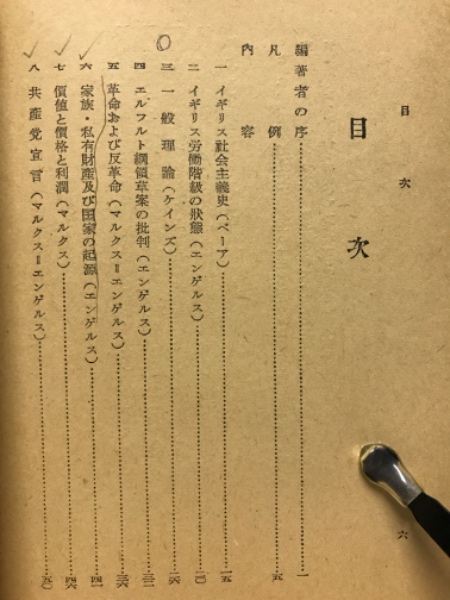 目次
六
目次
編著者の序………一
凡例………五
内容
一 イギリス社会主義史(ベーア)………一五
二 イギリス労働階級の状態(エンゲルス)………二〇
三 一般理論(ケインズ)………二六
四 エルフルト綱領草案の批判(エンゲルス)………三二
五 革命および反革命(マルクス=エンゲルス)………三六
六 家族・私有財産及び国家の起源(エンゲルス)………四一
七 価値と価格と利潤(マルクス)………四六
八 共産党宣言(マルクス=エンゲルス)………五〇